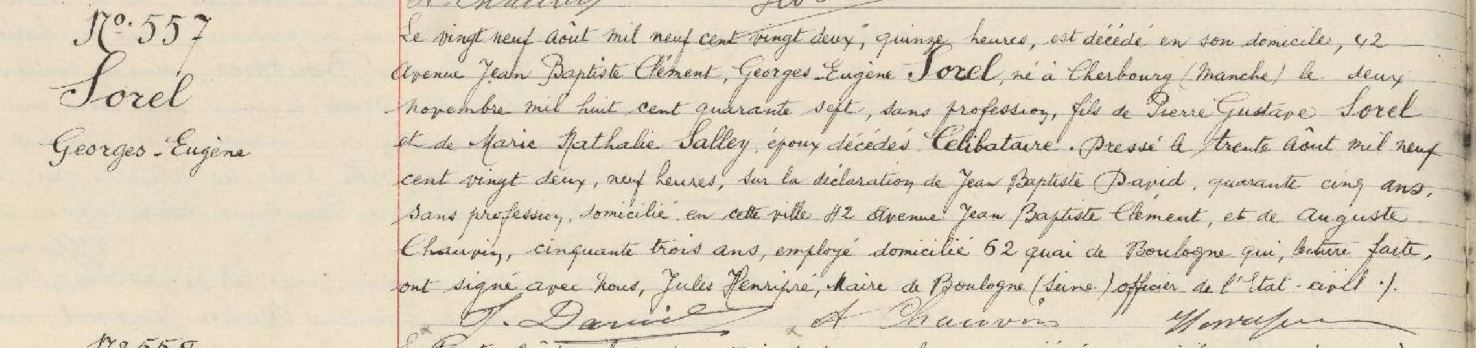 No. 557
Sorel
Georges-Eugène
Le vingt neuf août mil neuf cent vingt deux, quinze heures, est décédé en son domicile, 42
Avenue Jean Baptiste Clément, Georges-Eugène Sorel, né à Cherbourg (Manche) le deux
novembre mil huit cent quarante sept, sans profession, fils de Pierre Gustave Sorel
et de Marie Nathalie Salley, époux décédés Célibataire. Dressé le trente août mil neuf
cent vingt deux, neuf heures, sur la déclaration de Jean Baptiste David, quarante cinq ans,
sans profession, domicilié en cette ville 42 Avenue Jean Baptiste Clément, et de Auguste
Chauvin, cinquante trois ans, employé domicilié 62 quai de Boulogne qui, lecture faite,
ont signé avec Nous, Jules Henripré, Maire de Boulogne (Seine) officier de l'Etat-civil ./.
J. David A Chauvin
No 558